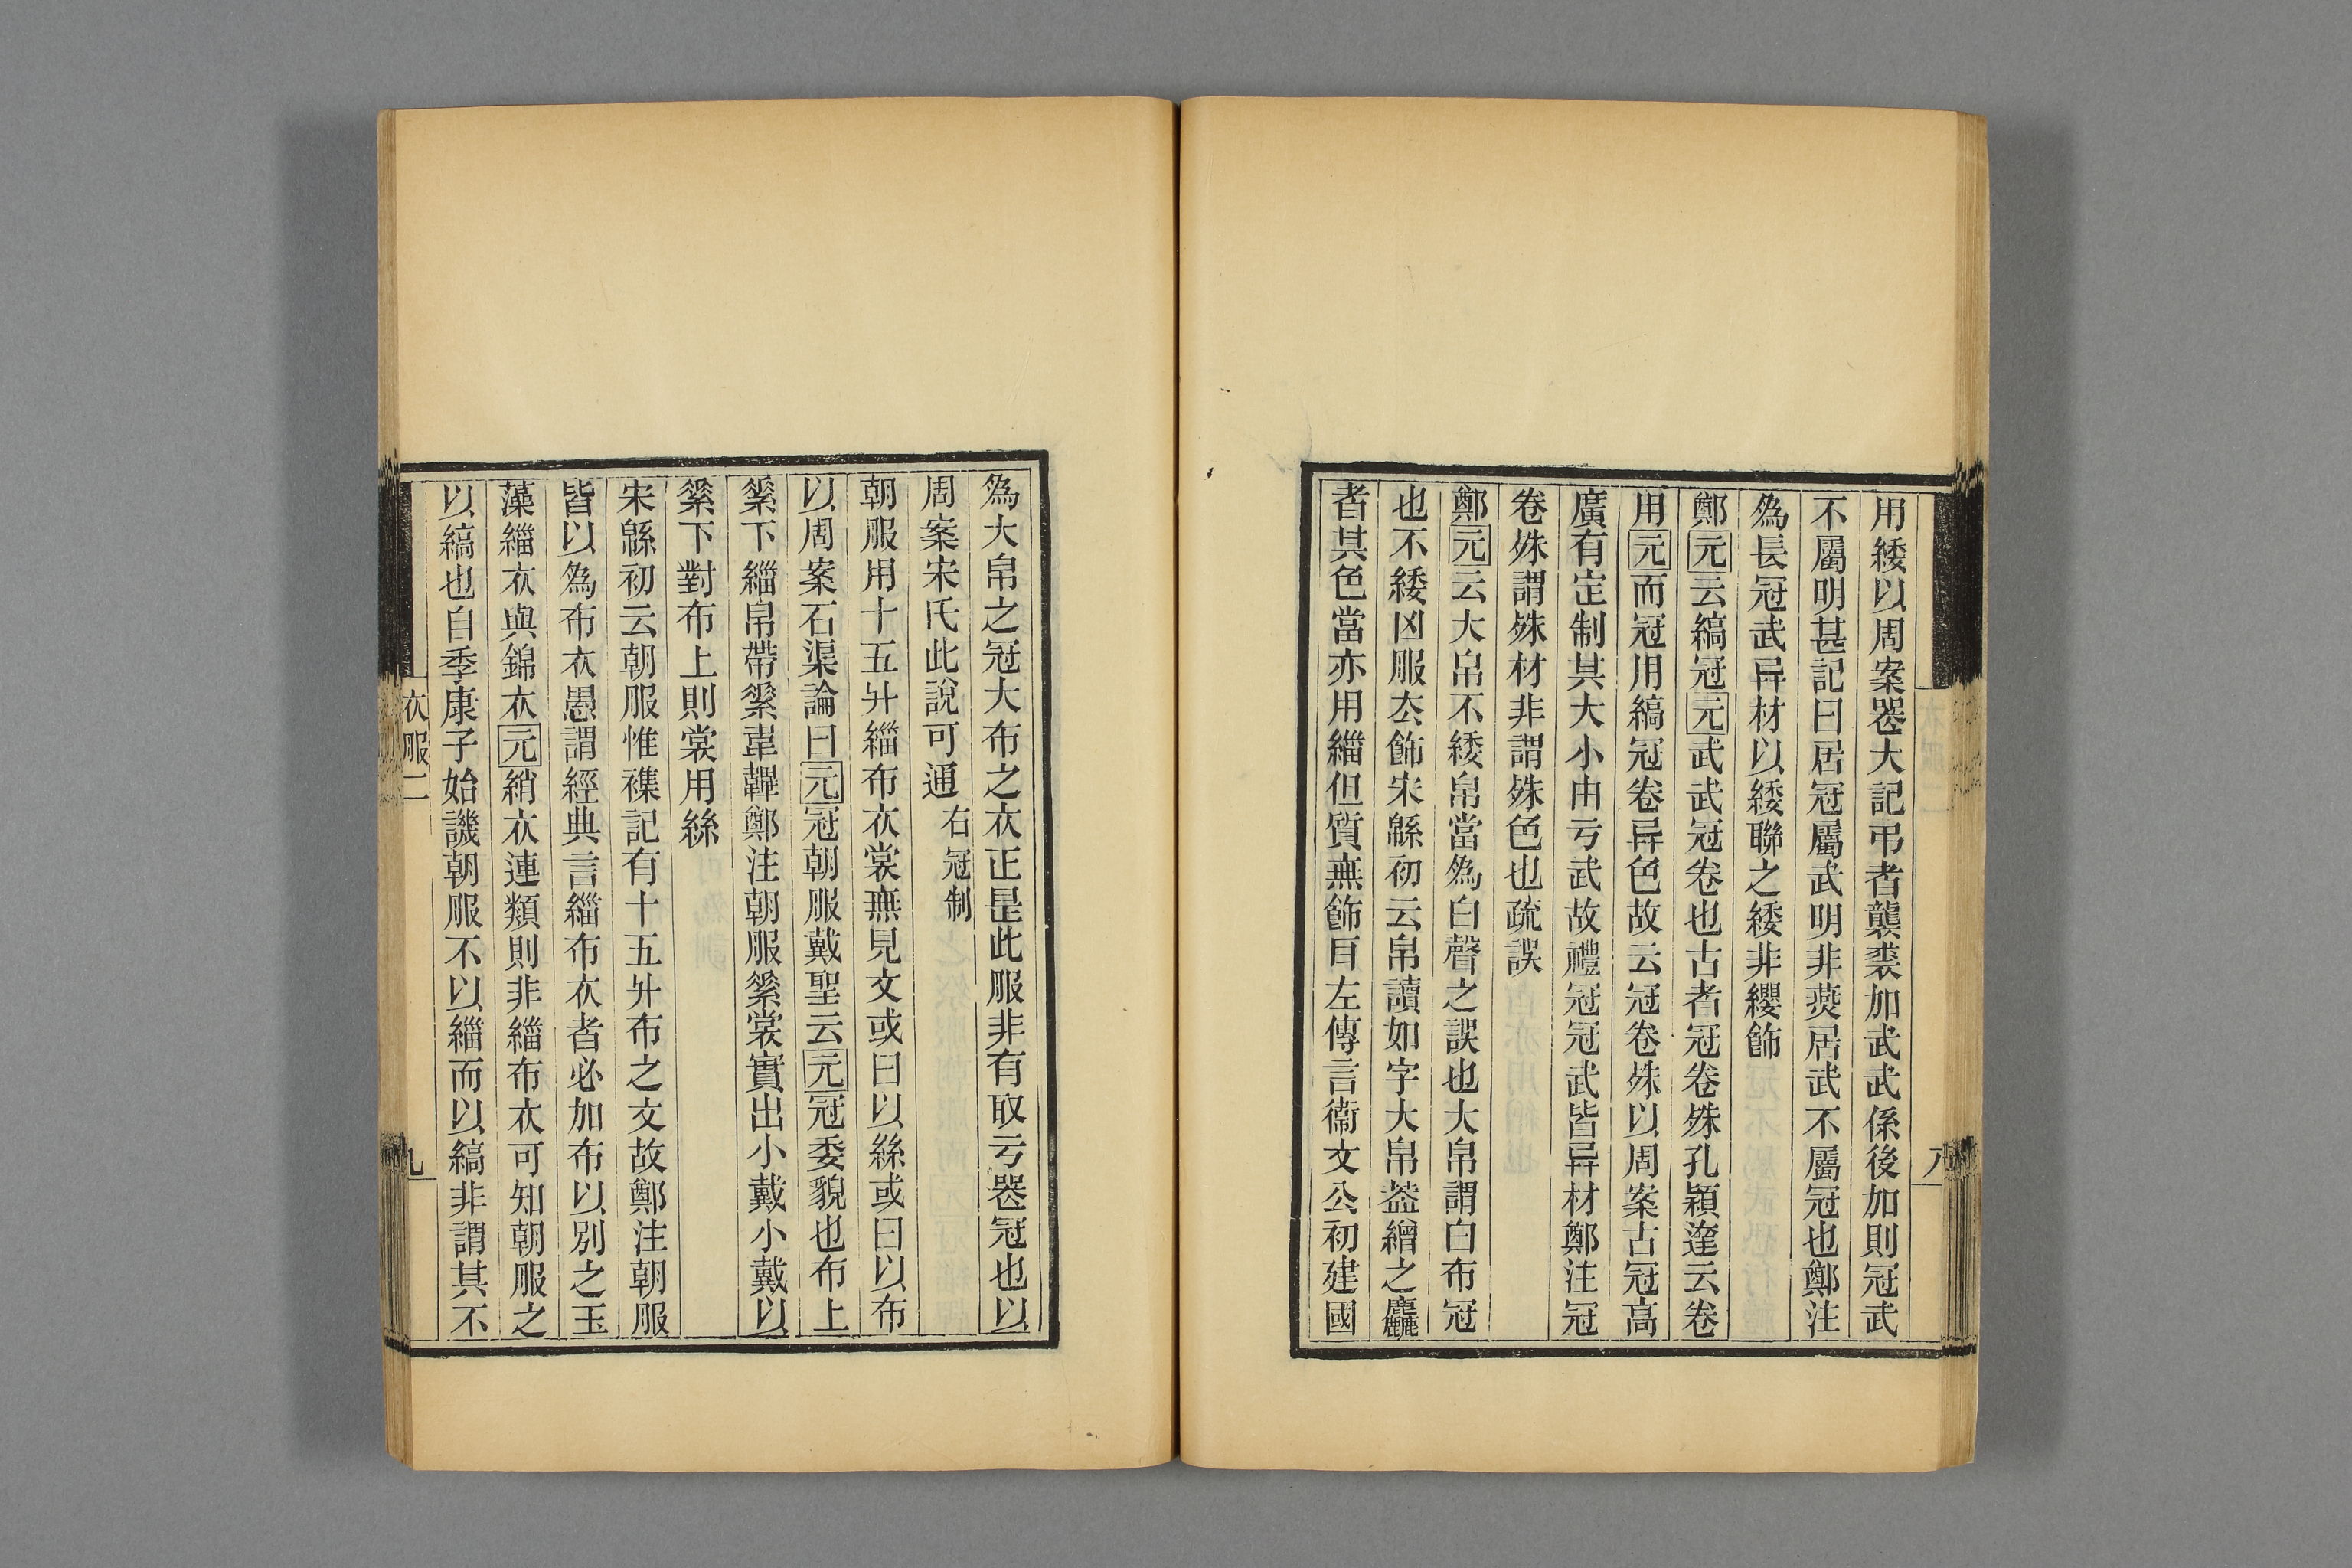 用緌以周案喪大記弔者襲裘加武武係後加則冠武
不屬明甚記曰居冠屬武明非燕居武不屬冠也鄭注
爲長冠武异材以緌聯之緌非纓飾
鄭元云縞冠元武武冠卷也古者冠卷殊孔穎達云卷
用元而冠用縞冠卷异色故云冠卷殊以周案古冠高
廣有定制其大小由亏武故禮冠冠武皆异材鄭注冠
卷殊謂殊材非謂殊色也疏誤
鄭元云大帛不緌帛當爲白聲之誤也大帛謂白布冠
也不緌凶服去飾宋緜初云帛讀如字大帛葢繒之麤
者其色當亦用緇但質無飾目左傳言衞文公初建國
八
爲大帛之冠大布之衣正昰此服非有取亏喪冠也以
周案宋氏此說可通 右冠制
朝服用十五升緇布衣裳無見文或曰以絲或曰以布
以周案石渠論曰元冠朝服戴聖云元冠委貌也布上
素下緇帛帶素韋韠鄭注朝服素裳實出小戴小戴以
素下對布上則裳用絲
宋緜初云朝服惟襍記有十五升布之文故鄭注朝服
皆以爲布衣愚謂經典言緇布衣者必加布以別之玉
藻緇衣與錦衣元綃衣連類則非緇布衣可知朝服之
以縞也自季康子始譏朝服不以緇而以縞非謂其不
衣服二
九